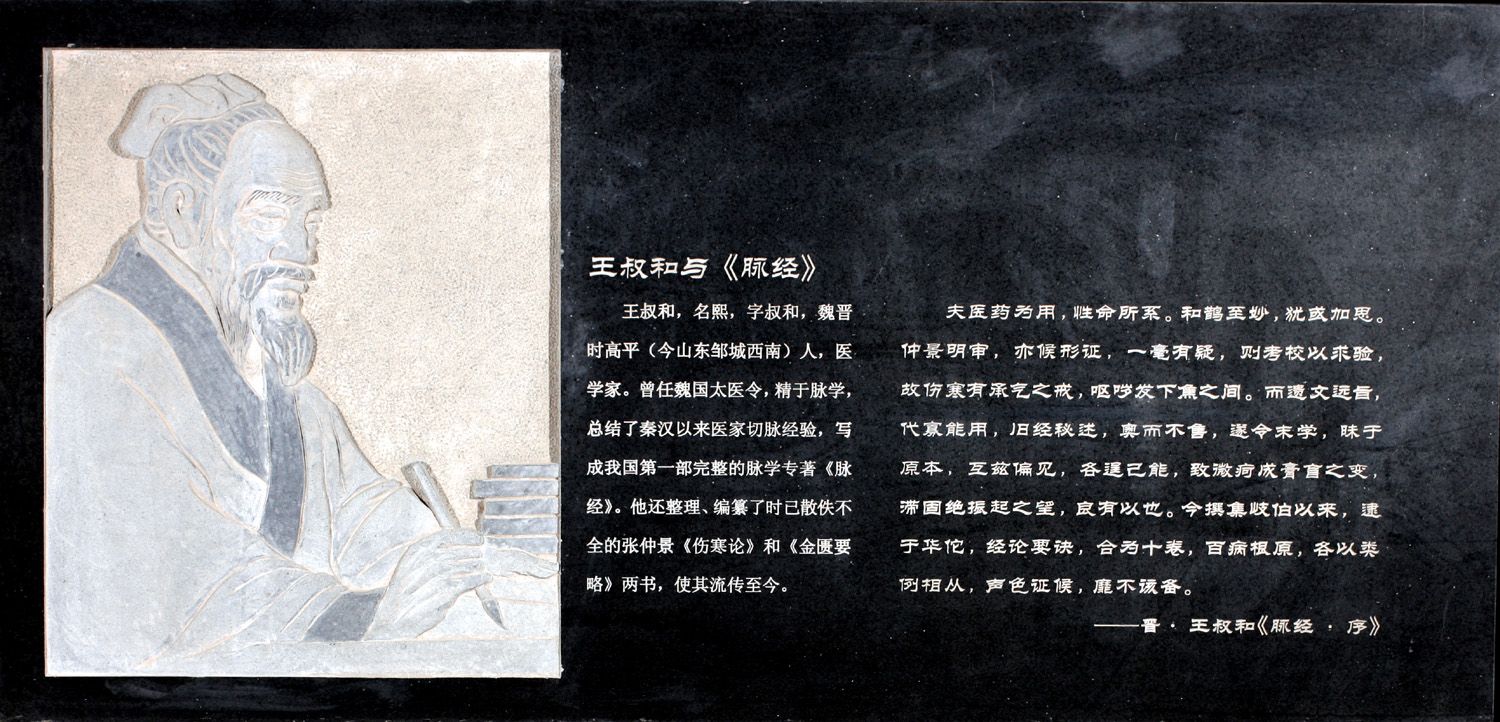 王叔和与《脉经》
王叔和，名熙，字叔和，魏晋
时高平（今山东邹城西南）人，医
学家。曾任魏国太医令，精于脉学，
总结了秦汉以来医家切脉经验，写
成我国第一部完整的脉学专著《脉
经》。他还整理、编纂了时已散佚不
全的张仲景《伤寒论》和《金匮要
略》两书，使其流传至今。
夫医药为用，性命所系。和鹊至妙，犹或加思。
仲景明审，亦候形证，一毫有疑，则考校以求验，
故伤寒有承气之戒，呕哕发下焦之间。而遗文远旨，
代寡能用，旧经秘述，奥而不售，遂令末学，昧于
原本，互兹偏见，各逞己能，致微疴成膏肓之变，
滞固绝振起之望，良有以也。今撰集岐伯以来，逮
于华佗，经论要诀，合为十卷，百病根原，各以类
例相从，声色证候，靡不该备。
——晋·王叔和《脉经·序》